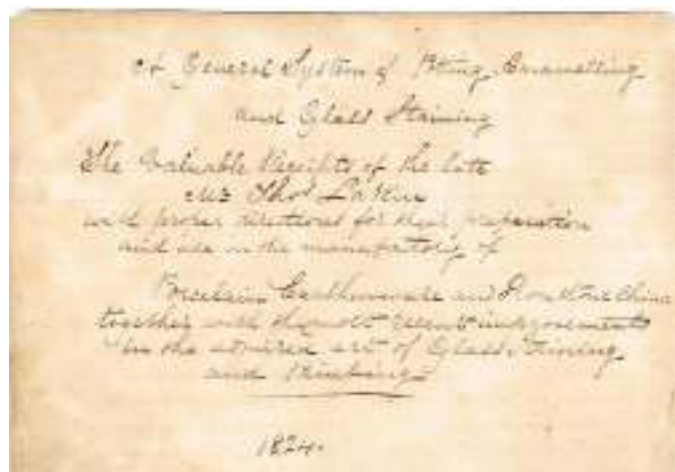 A General System of Potting, Enamelling
and Glass Staining
The Valuable Receipts of the late
Mr Thos Lakin
with proper directions for their preparation
and use in the manufactory of
Porcelain Earthenware and Iron Stone China
together with the most recent improvements
in the admired art of Glass Staining
and Painting
1824.